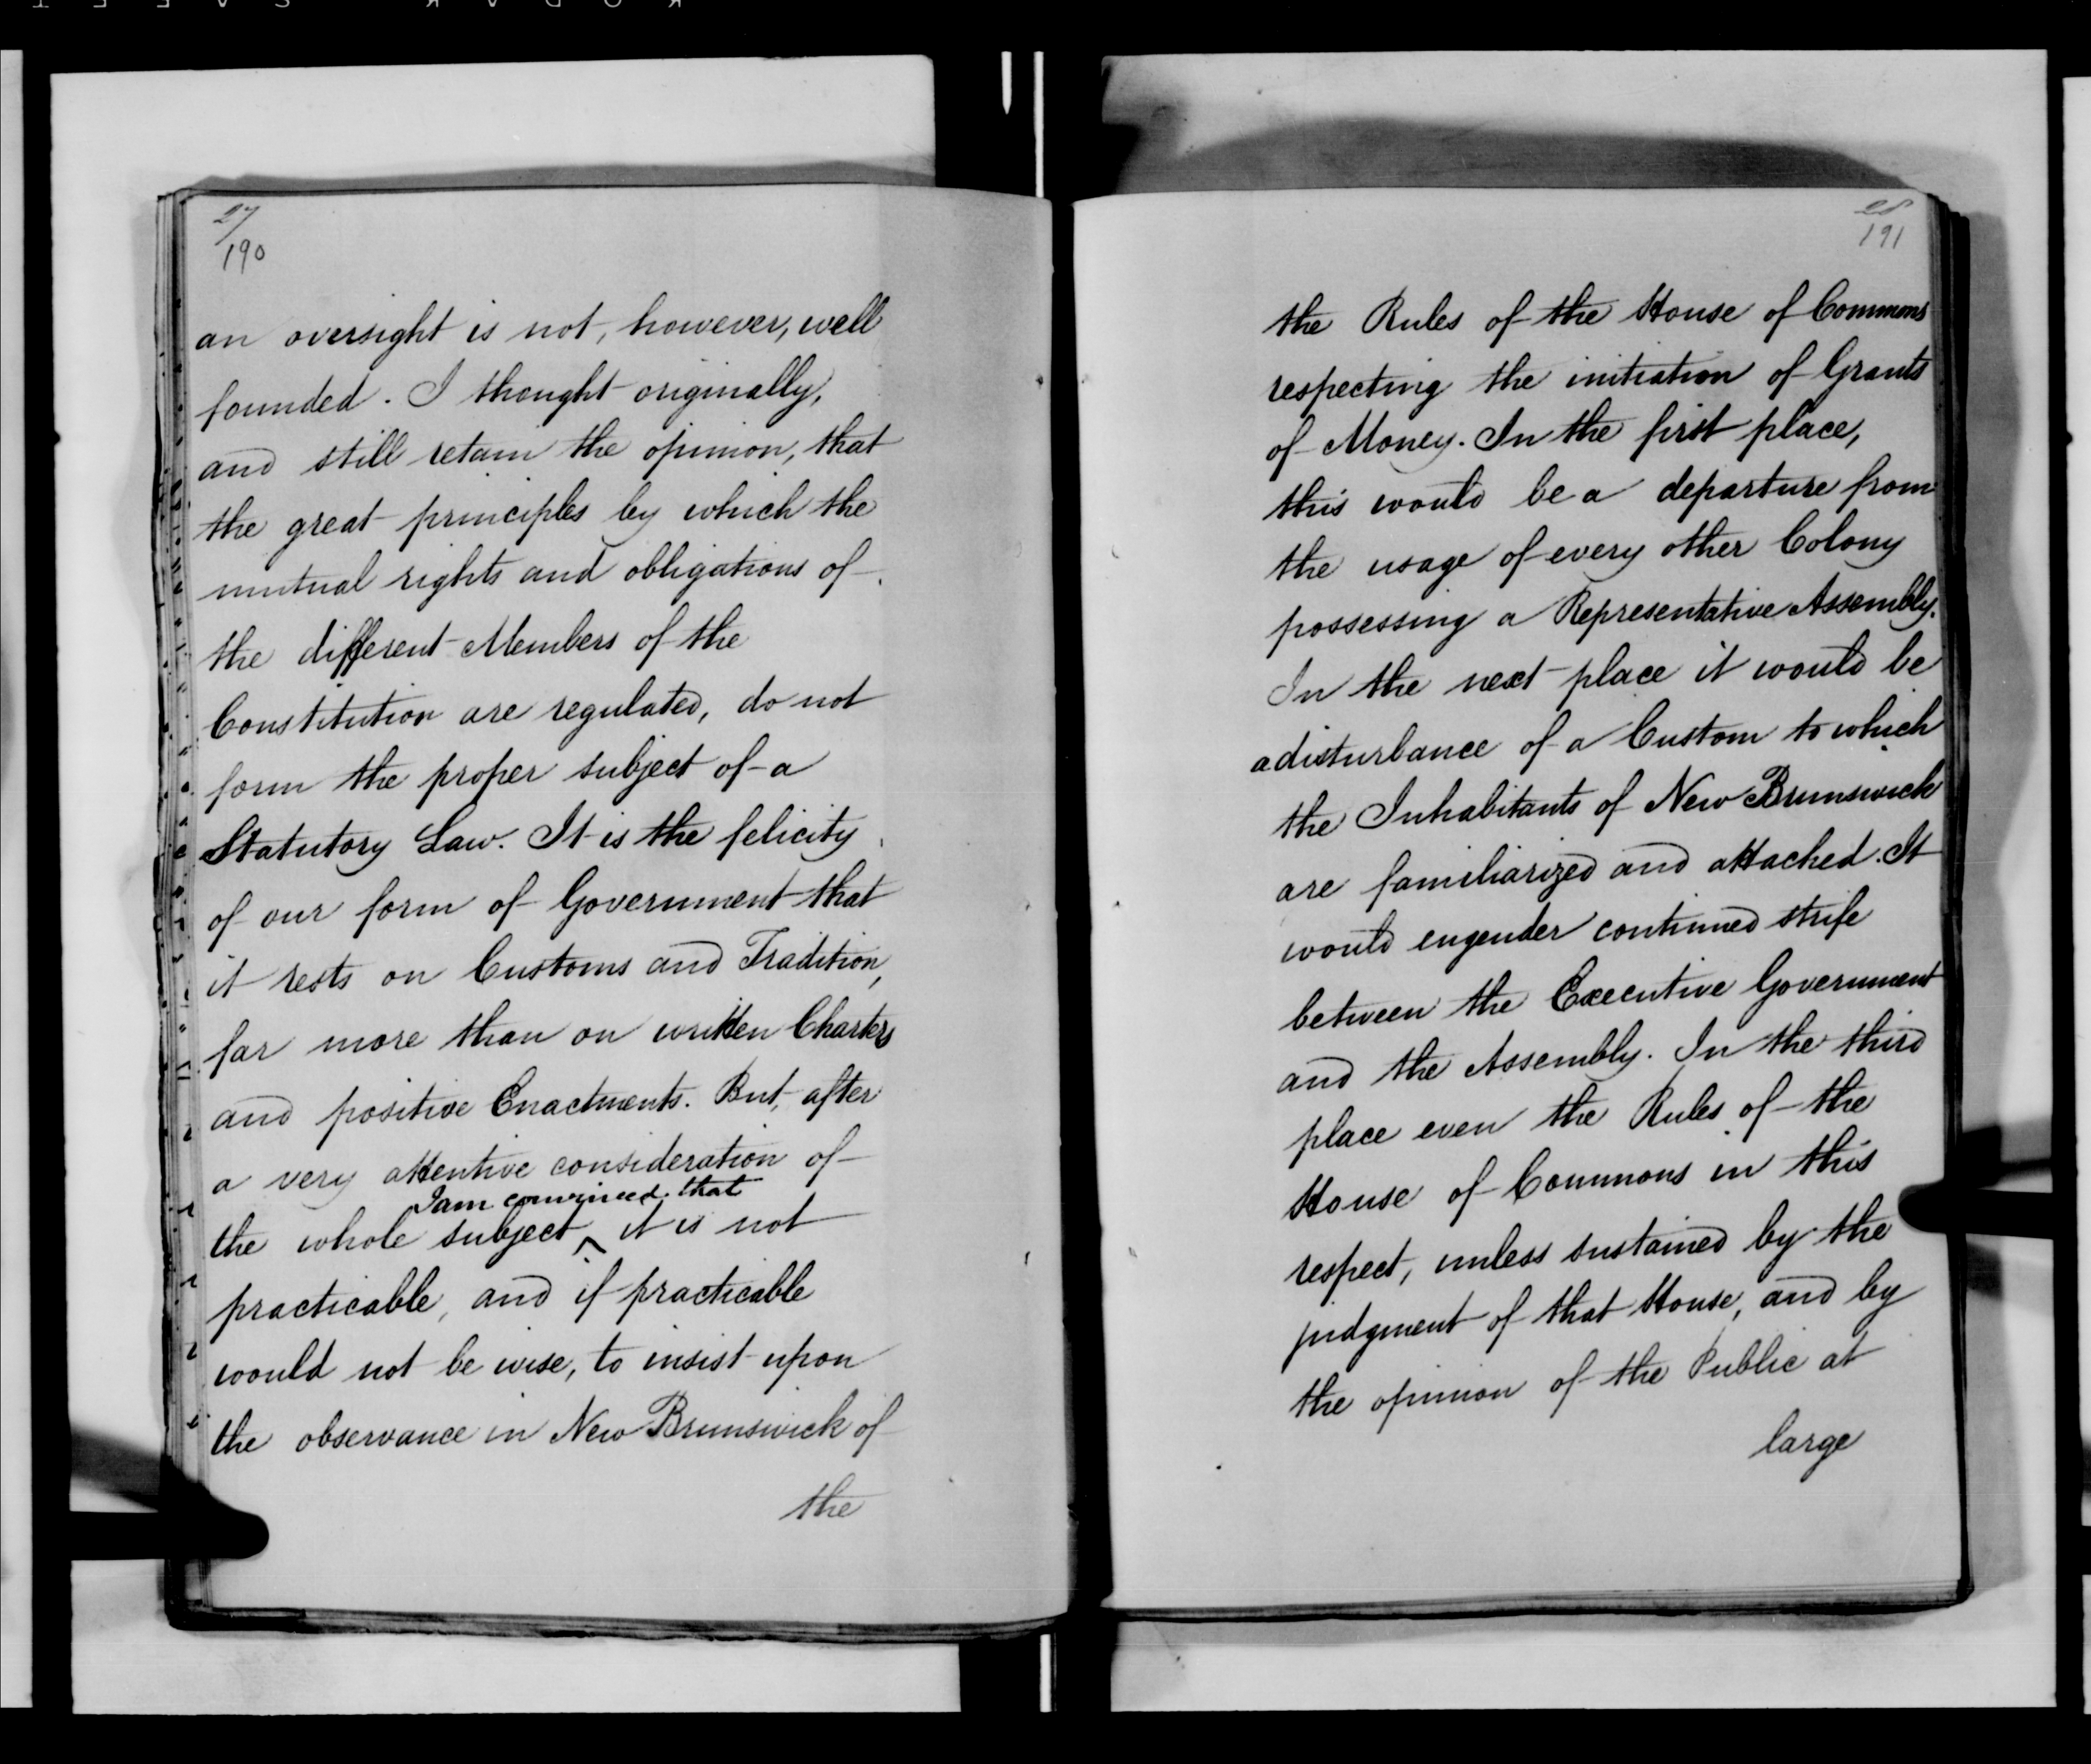 27/
190
an oversight is not, however, well
founded. I thought originally,
and still retain the opinion, that
the great principles by which the
mutual rights and obligations of
the different Members of the
Constitution are regulated, do not
form the proper subject of a
Statutory Law. It is the felicity
of our form of Government that
it rests on Customs and Tradition,
far more than on written Charters
and positive Enactments. But, after
a very attentive consideration of
I am convinced that
the whole subject ^ it is not
practicable, and if practicable
would not be wise, to insist upon
the observance in New Brunswick of
the
28
191
the Rules of the House of Commons
respecting the initiation of Grants
of Money. In the first place,
this would be a departure from
the usage of every other Colony
possessing a Representative Assembly.
In the next place it would be
a disturbance of a Custom to which
the Inhabitants of New Brunswick
are familiarized and attached. It
would engender continued strife
between the Executive Government
and the Assembly. In the third
place even the Rules of the
House of Commons in this
respect, unless sustained by the
judgment of that House, and by
the opinion of the Public at
large